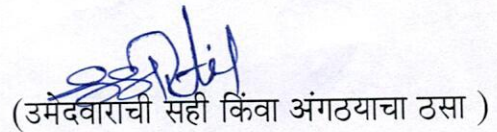 (उमेदवाराची सही किंवा अंगठयाचा ठसा )